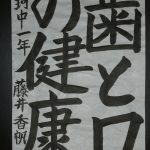 歯と口
の健康
中一年 藤井香帆